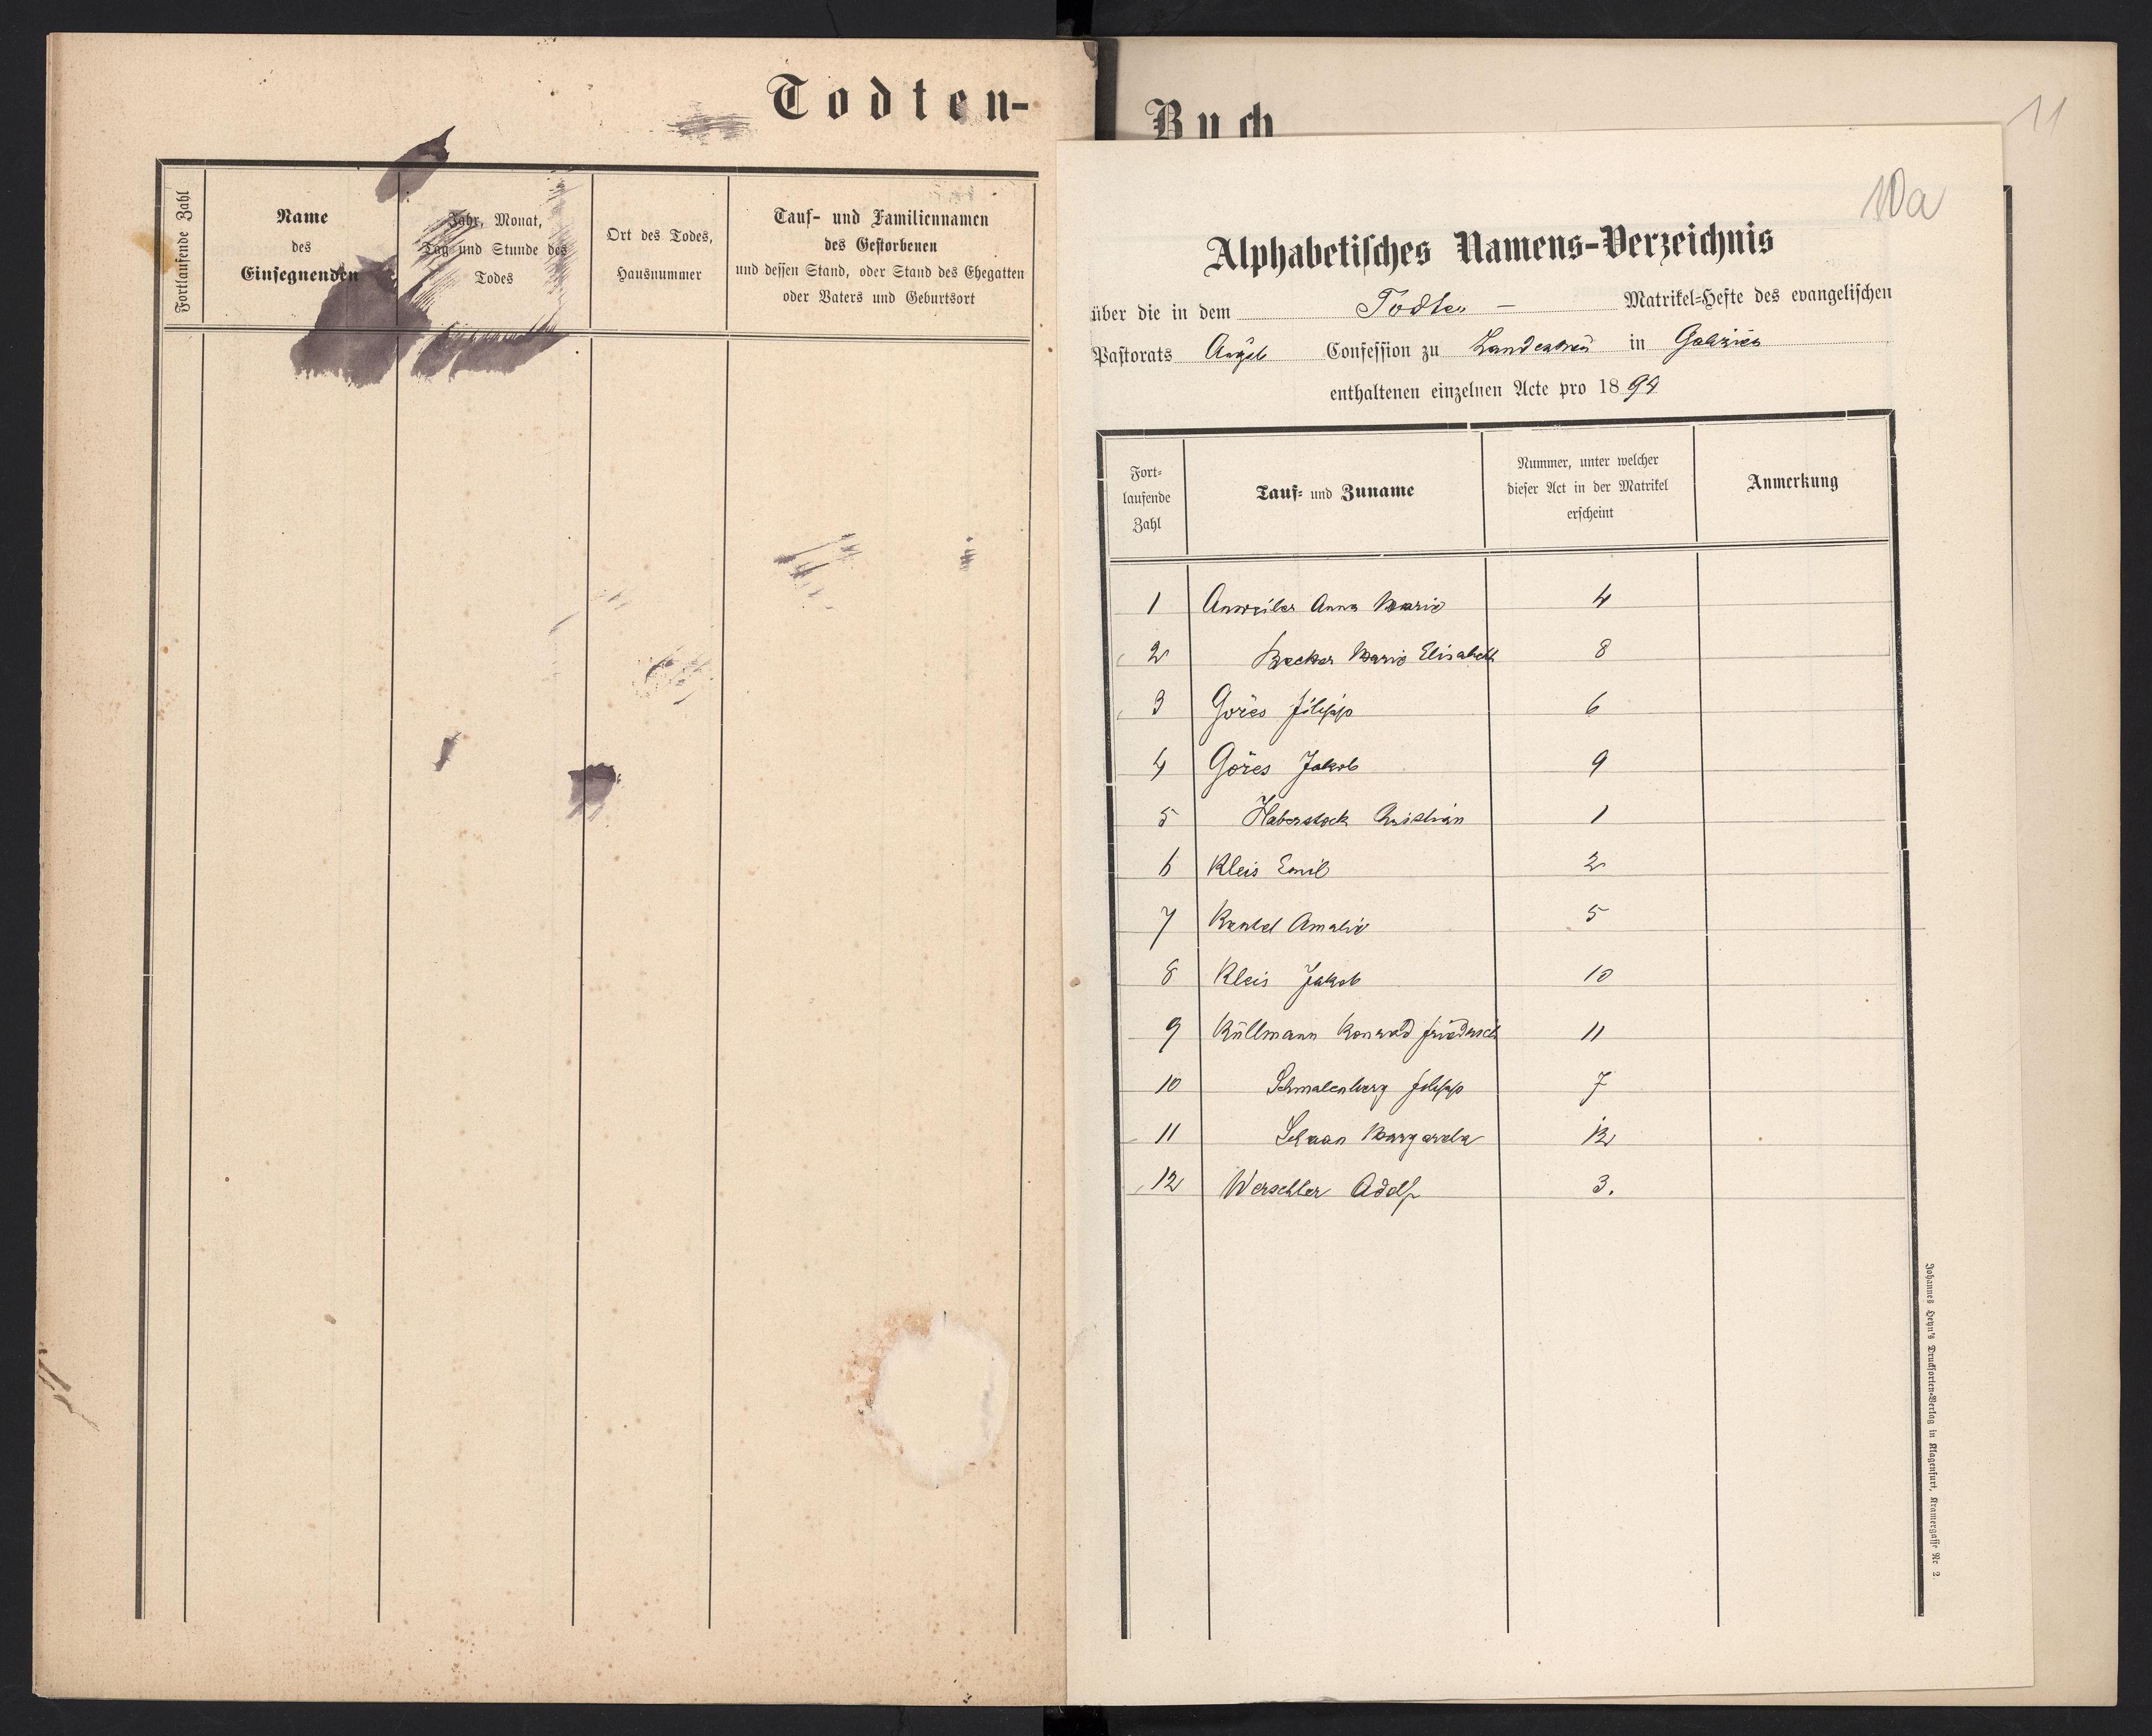 Todten-
Fortlaufende Zahl
Name
des
Einsegnenden
Jahr, Monat,
Tag und Stunde des
Todes
Ort des Todes,
Hausnummer
Tauf- und Familiennamen
des Gestorbenen
und dessen Stand, oder Stand des Ehegatten
oder Vaters und Geburtsort
Buch
11
10a
Alphabetisches Namens-Verzeichnis
über die in dem Todten - Matrikel-Hefte des evangelischen
Pastorats Augsb Confession zu Landestreu in Galizien
enthaltenen einzelnen Acte pro 1894
Fort-
laufende
Zahl
Tauf- und Zuname
Nummer, unter welcher
dieser Act in der Matrikel
erscheint
Anmerkung
1 Anweiler Anna Marie 4
2 Becker Marie Elisabeth 8
3 Göres Filipp 6
4 Göres Jakob 9
5 Haberstock Christian 1
6 Kleis Emil 2
7 Amalie 5
8 Kleis Jakob 10
9 Küllmann Konrad Friedrich 11
10 Schmalenberg Filipp 7
11 Schaan Margareta 12
12 Werschler Adolf 3.
Johannes Heyn's Drucksorten-Verlag in Klagenfurt, Kramergasse Nr 2.